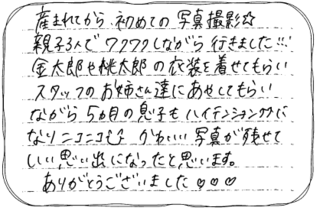 産まれてから 初めての 写真撮影☆
親子3人で ワクワクしながら 行きました!!
金太郎や桃太郎の衣装を着せてもらい
スタッフの お姉さん達に あやしてもらい
ながら 5ヵ月の息子も ハイテンション
になり ニコニコ かわいい 写真が残せて
いい思い出になったと思います。
ありがとうございました♡♡♡